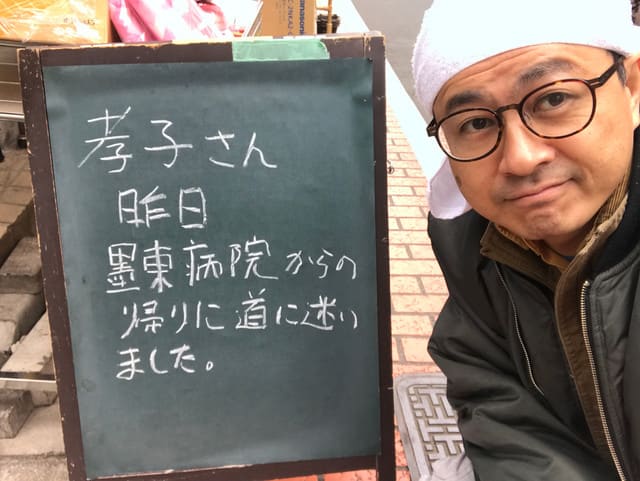 Panasonic
孝子さん
昨日
墨東病院からの
帰りに道に迷い
ました。